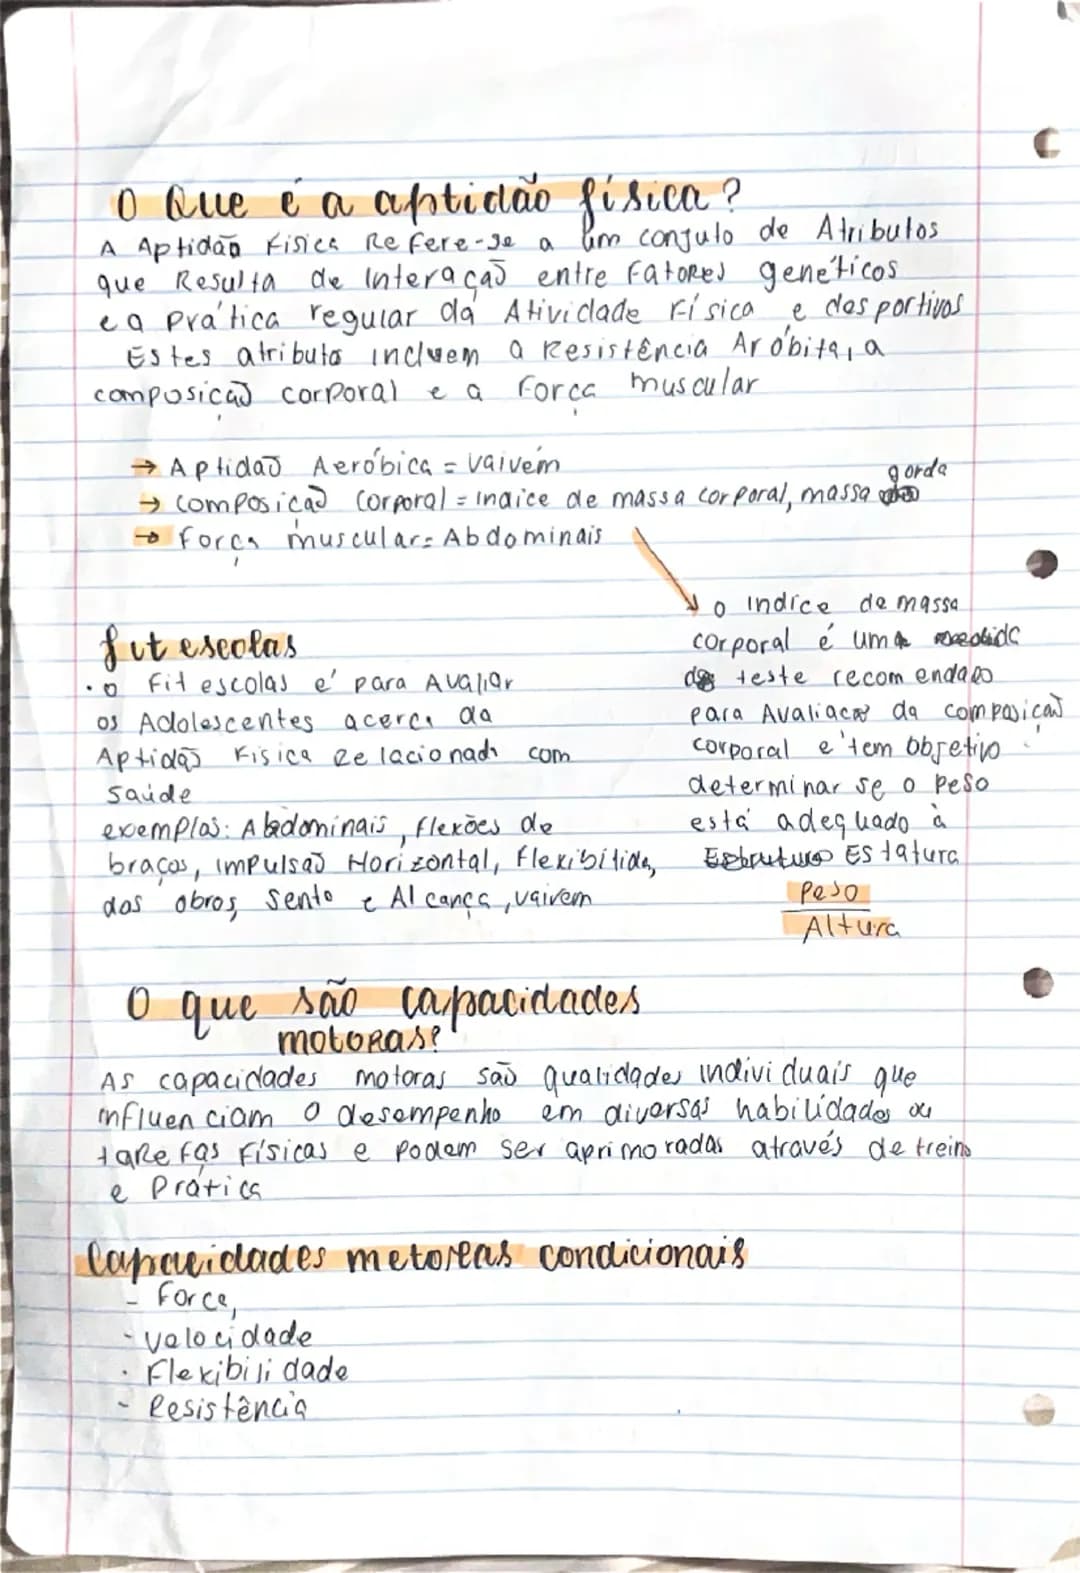 O Que é a aptidão física?
A Aptidão Física Refere-se a um conjulo de Atributos
que Resulta de Interação entre Fatores genéticos
e a prática regular da Atividade Física e desportivas
Estes atributo incluem a Resistência Aróbita, a
composição corporal e a Força muscular
→ Aptidão Aeróbica = Vaivém
gorda
→ Composição Corporal = indice de massa corporal, massa
→ Força muscular = Abdominais
fit escolas
. o Fit escolas é para Avaliar
os Adolescentes acerca da
Aptidão Física Relacionada com
saúde
exemplos: Abdominais, flexões de
braços, impulsão Horizontal, Flexibilida,
dos obros, Senta e Alcança, vaivem
o indice de massa
corporal é um
teste recomendado
para Avaliação da composição
corporal e tem objetivo
determinar se o peso
está adequado à
Estatura
Peso
Altura
O que são capacidades
motoras?
As capacidades motoras são qualidades individuais que
influenciam o desempenho em diversas habilidades ou
tarefas Físicas e podem ser aprimoradas através de treino
e Prática
Capacidades metoreas condicionais
- Força,
- velocidade
. Flexibilidade
- Resistência